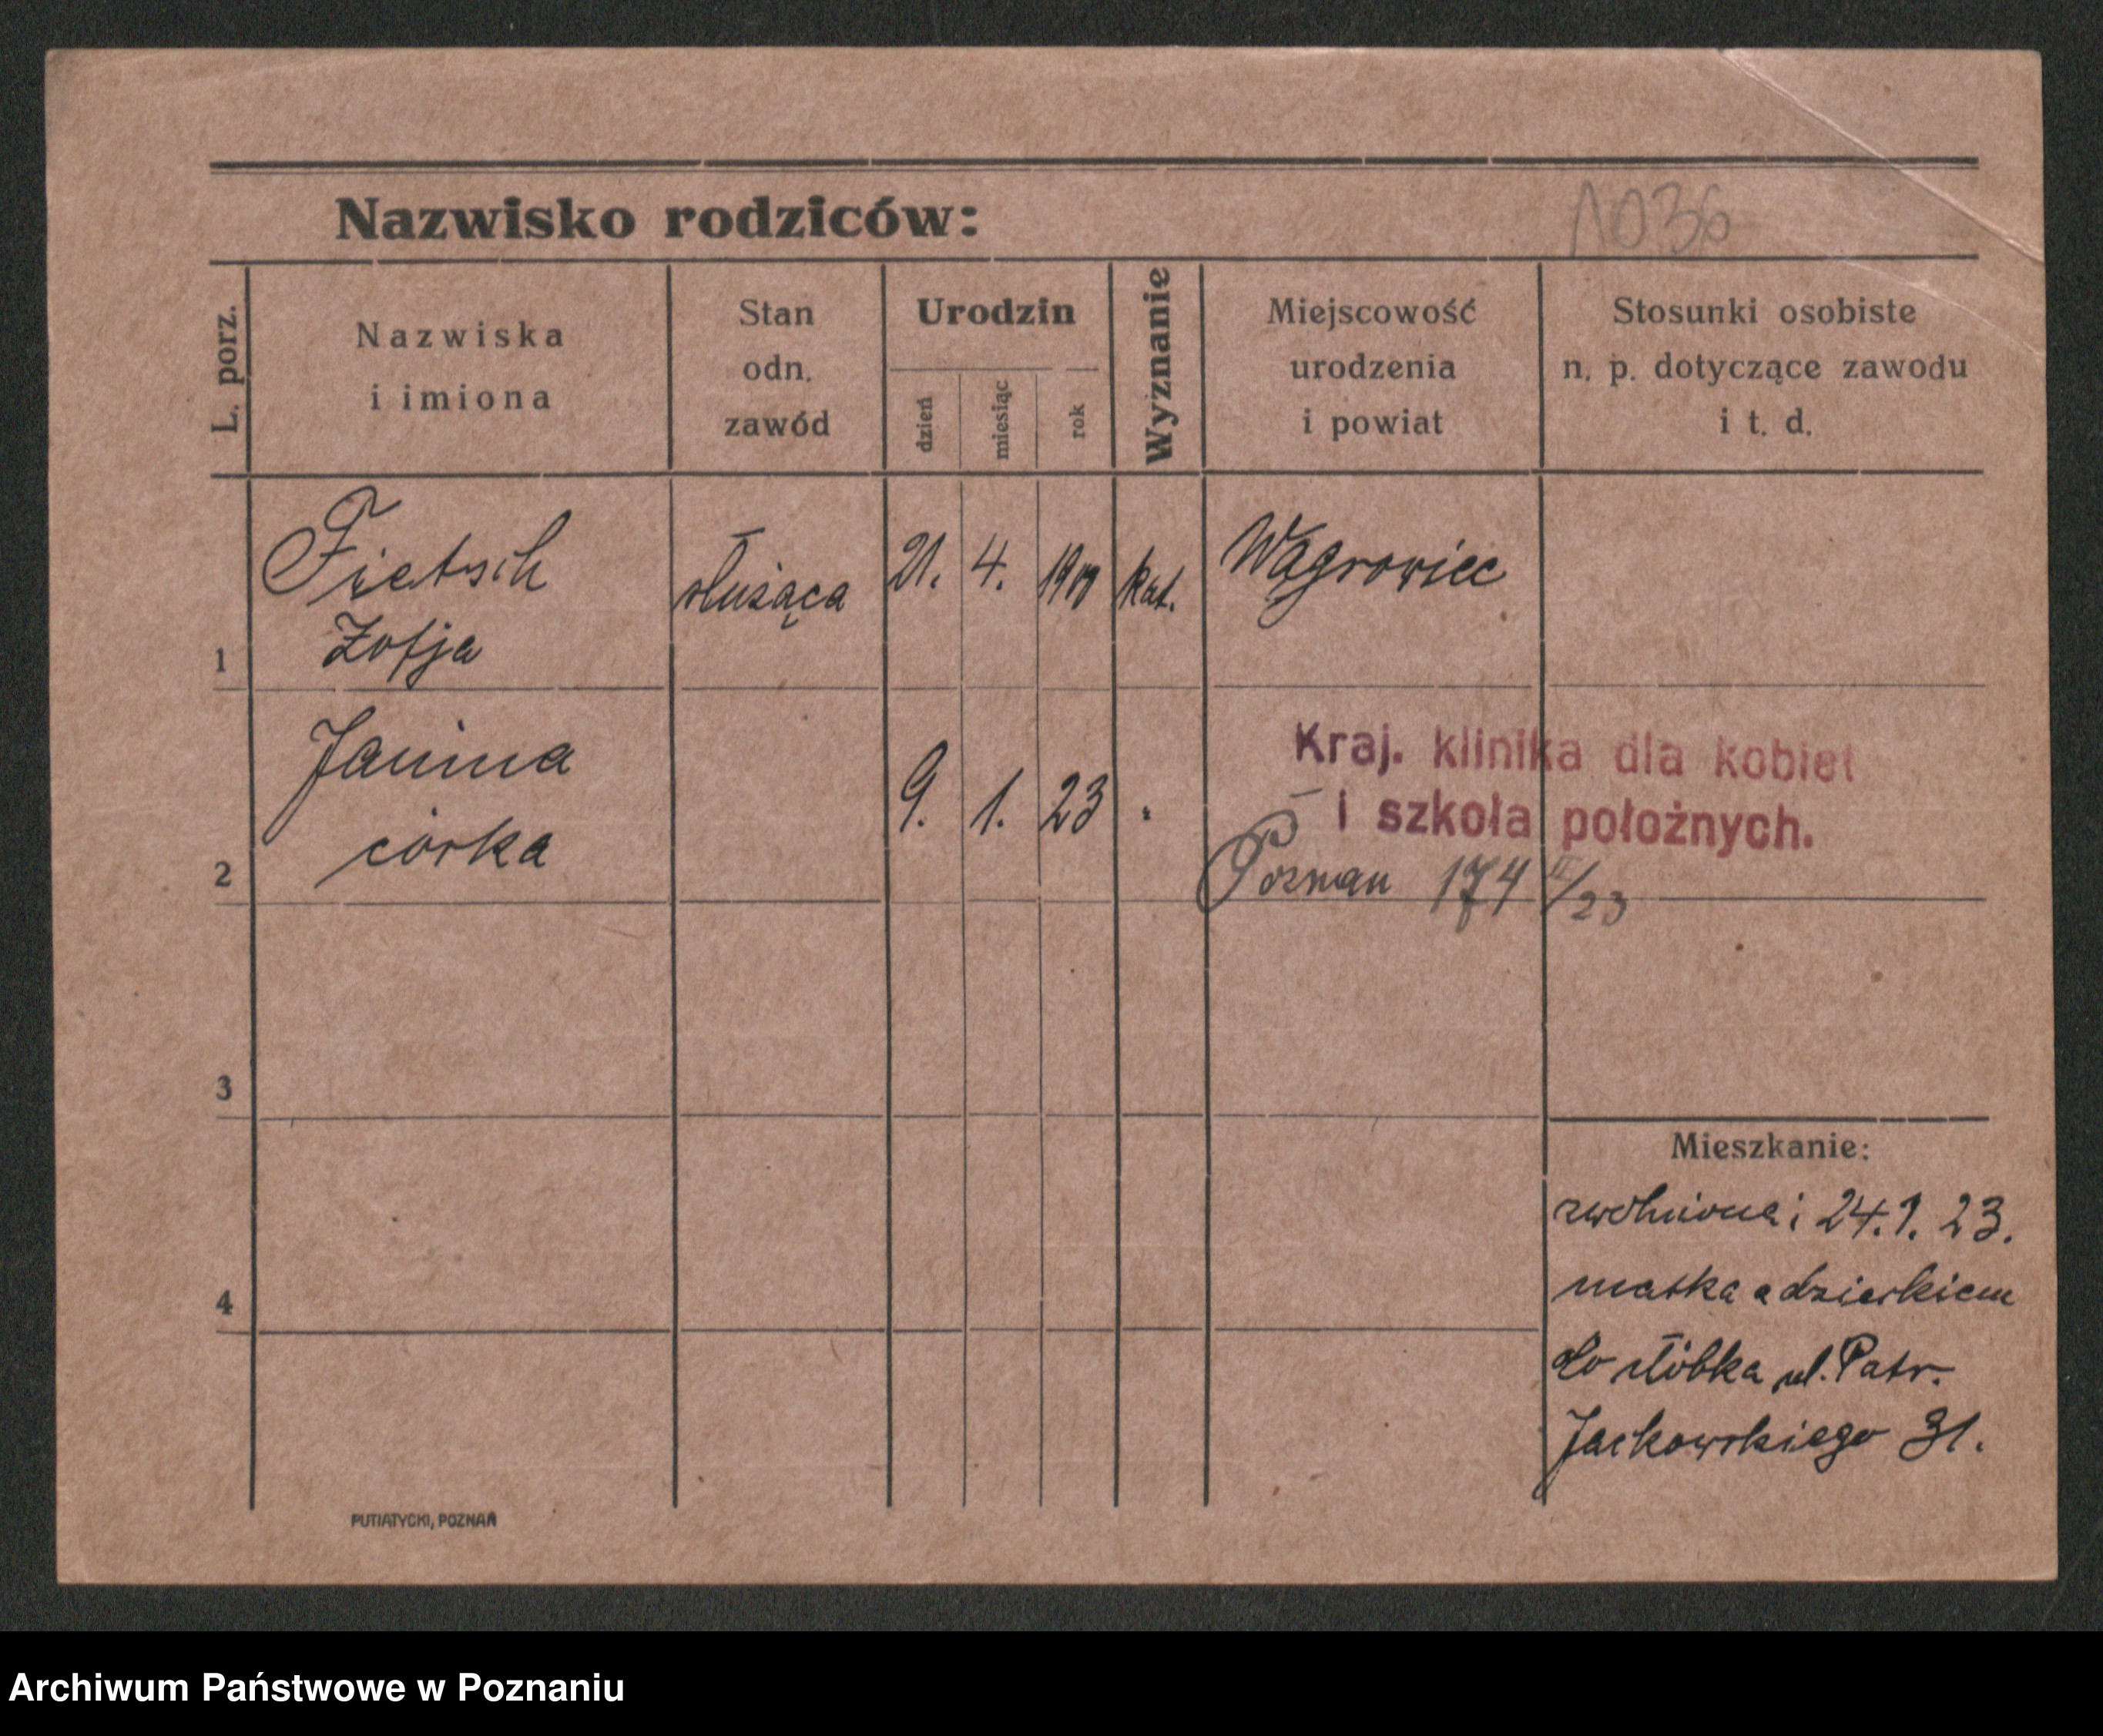 Nazwisko rodziców:
1036
L. porz.
Nazwiska
i imiona
Stan
odn.
zawód
Urodzin
dzień
miesiąc
rok
Wyznanie
Miejscowość
urodzenia
i powiat
Stosunki osobiste
n. p. dotyczące zawodu
i t. d.
1
Fietsch
Zofja
służąca
21. 4. 1900 kat.
Wągrowiec
2
Janina
córka
9. 1. 23 "
Kraj. klinika dla kobiet
i szkoła położnych.
Poznań 174 II/23
3
4
Mieszkanie:
zwolniona: 24.1.23.
matka z dzieckiem
do żłóbka ul. Patr.
Jackowskiego 31.
PUTIATYCKI, POZNAŃ
Archiwum Państwowe w Poznaniu